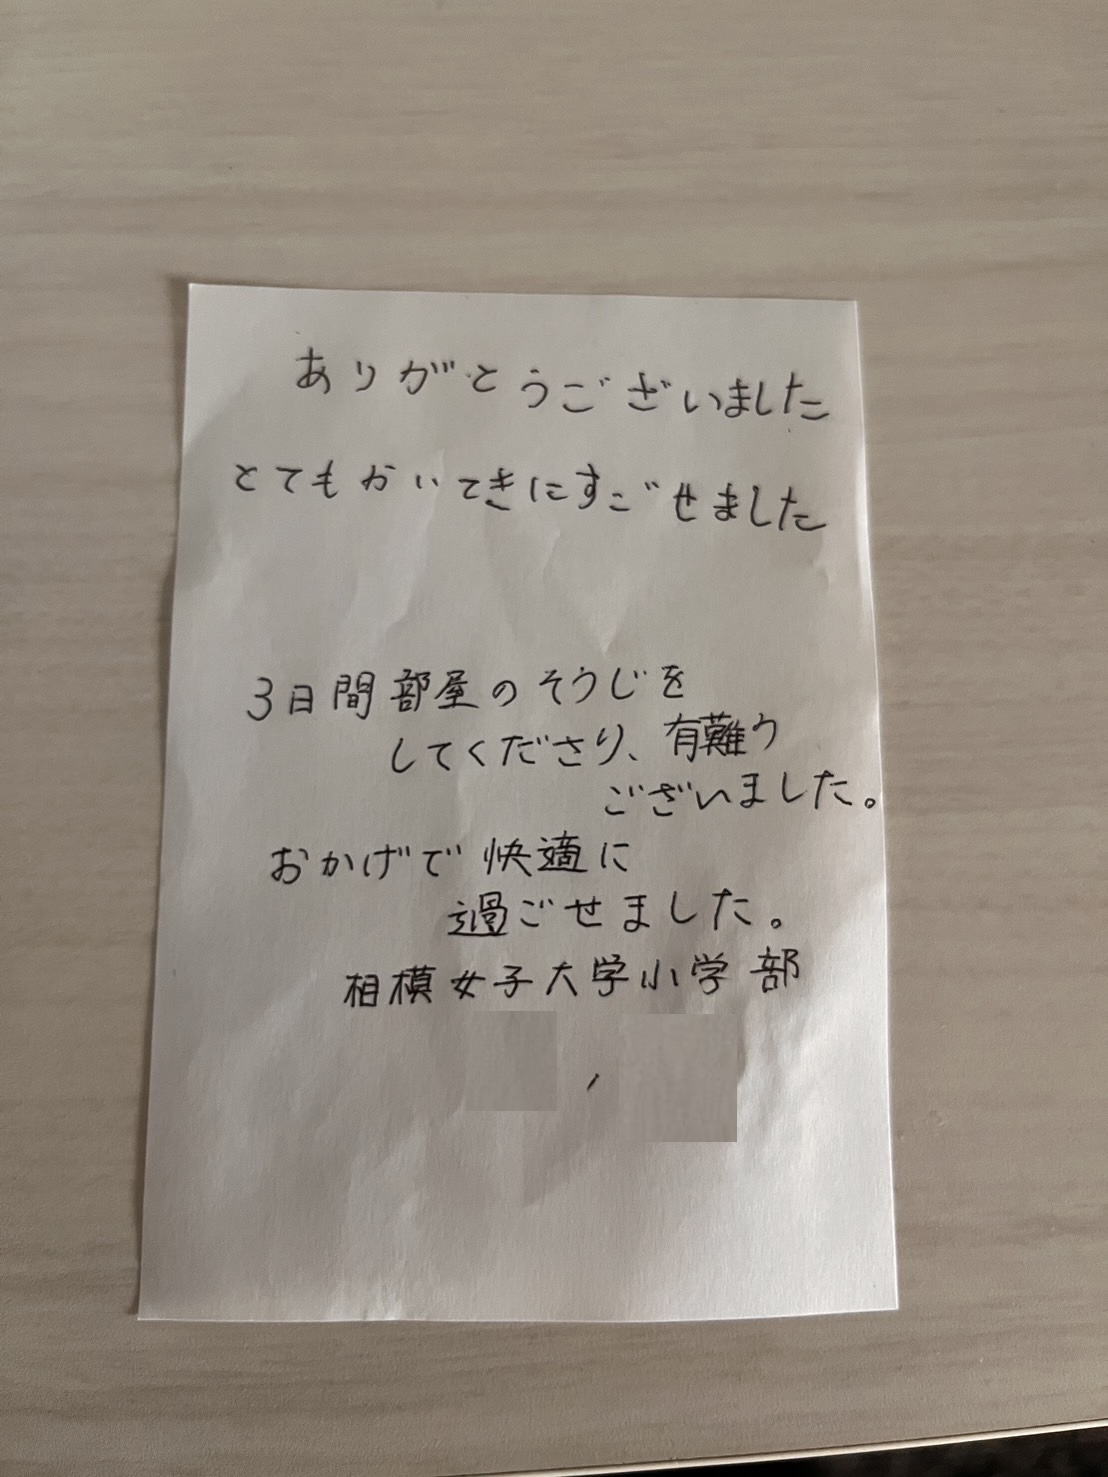 ありがとうございました
とてもかいてきにすごせました
3日間部屋のそうじを
してくださり、有難う
ございました。
おかげで快適に
過ごせました。
相模女子大学小学部